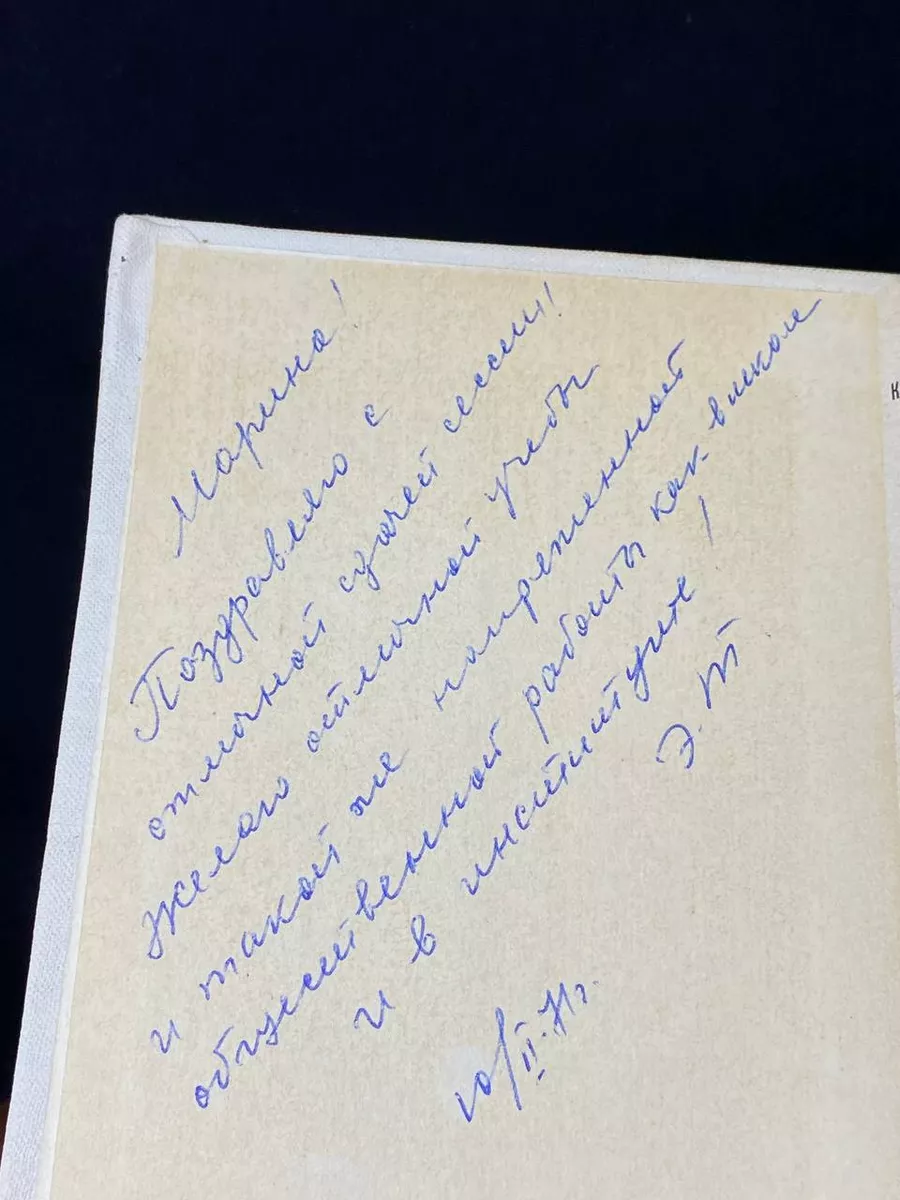 Марина!
Поздравляю с
отличной сдачей сессии!
Желаю отличной учебы
и такой же напряженной
общественной работы как в школе
и в институте!
Э.Т
10/II-71г.
К